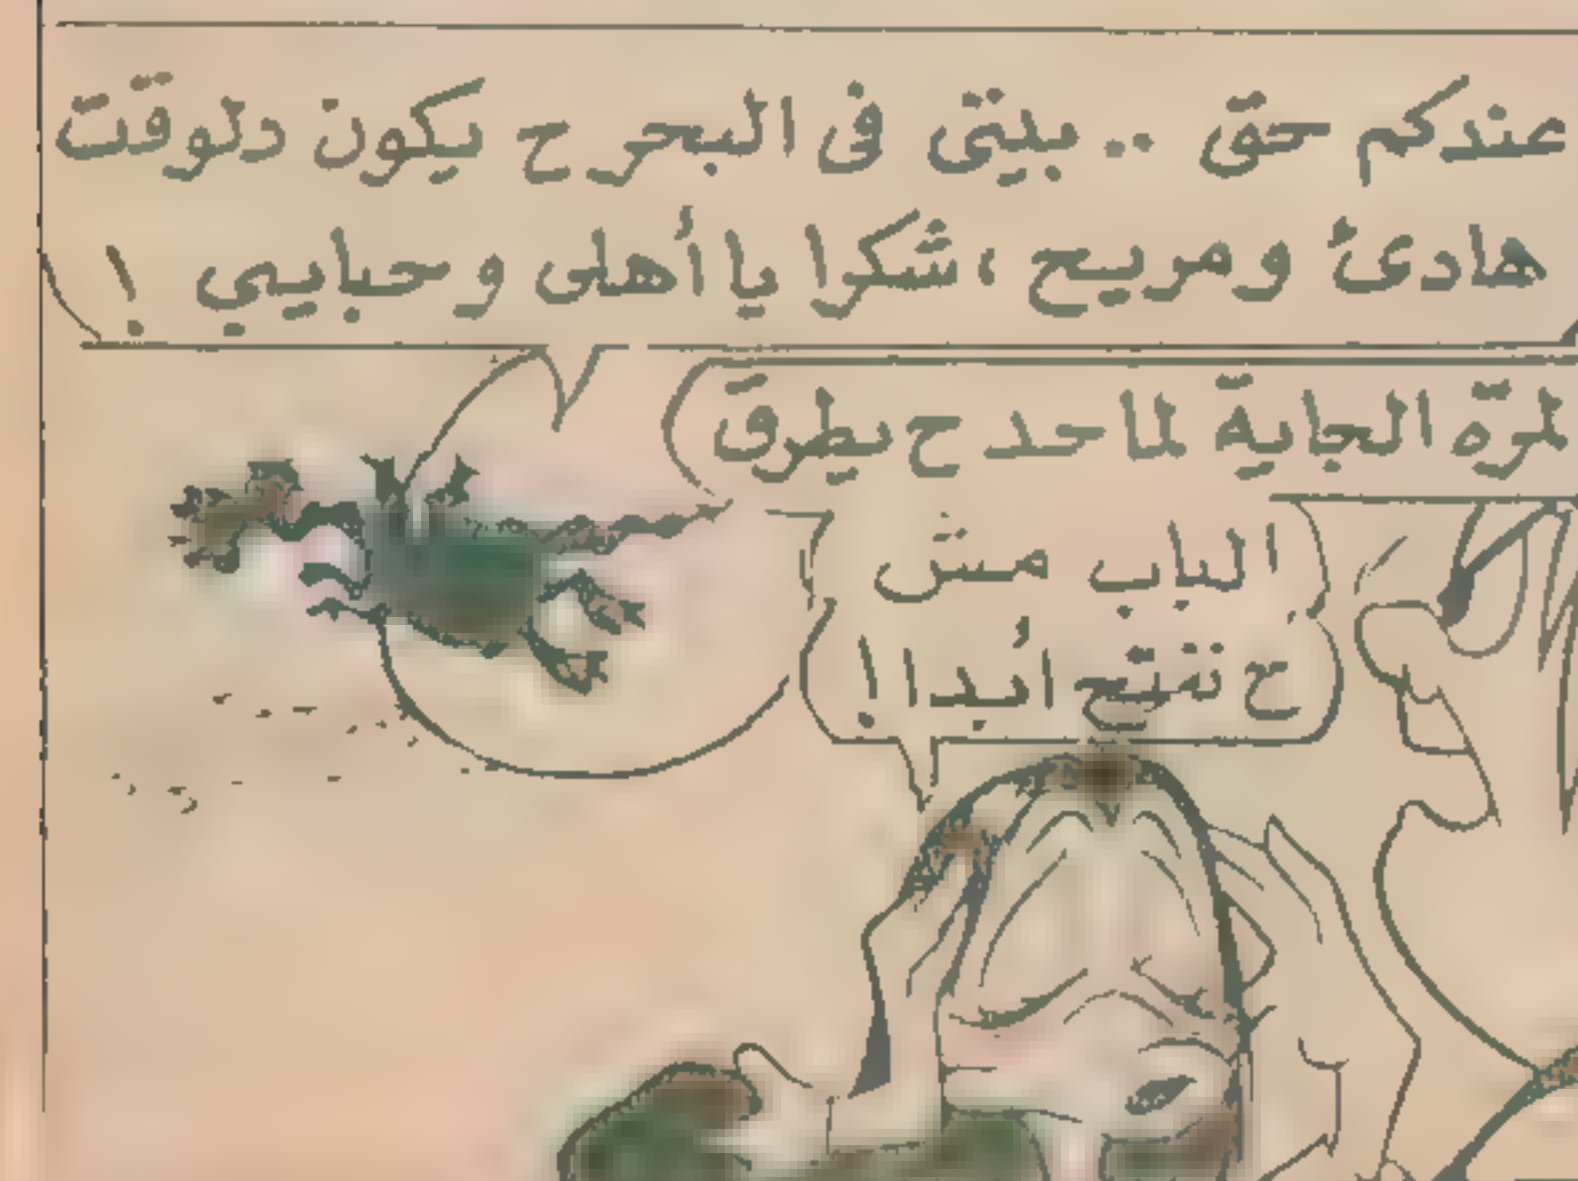 عندكم حق .. بيتى فى البحر ح يكون دلوقت
هادئ ومريح ، شكرا يا أهلى وحبايبي !
لمرّه الجاية لما حد ح يطرق
الباب مش
ح نفتح أبدا !